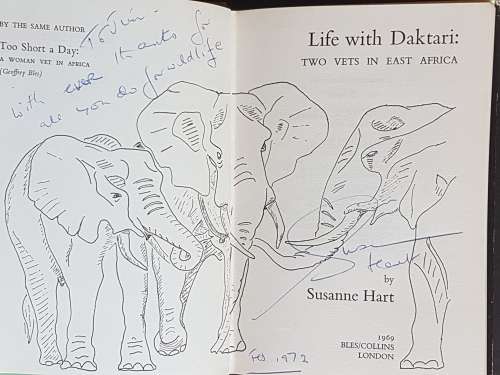 BY THE SAME AUTHOR
Too Short a Day:
A WOMAN VET IN AFRICA
(Geoffrey Bles)
To Jim -
With ever thanks for
all you do for wildlife
Life with Daktari:
TWO VETS IN EAST AFRICA
Susanne
Hart
by
Susanne Hart
1969
BLES/COLLINS
LONDON
Feb 1972